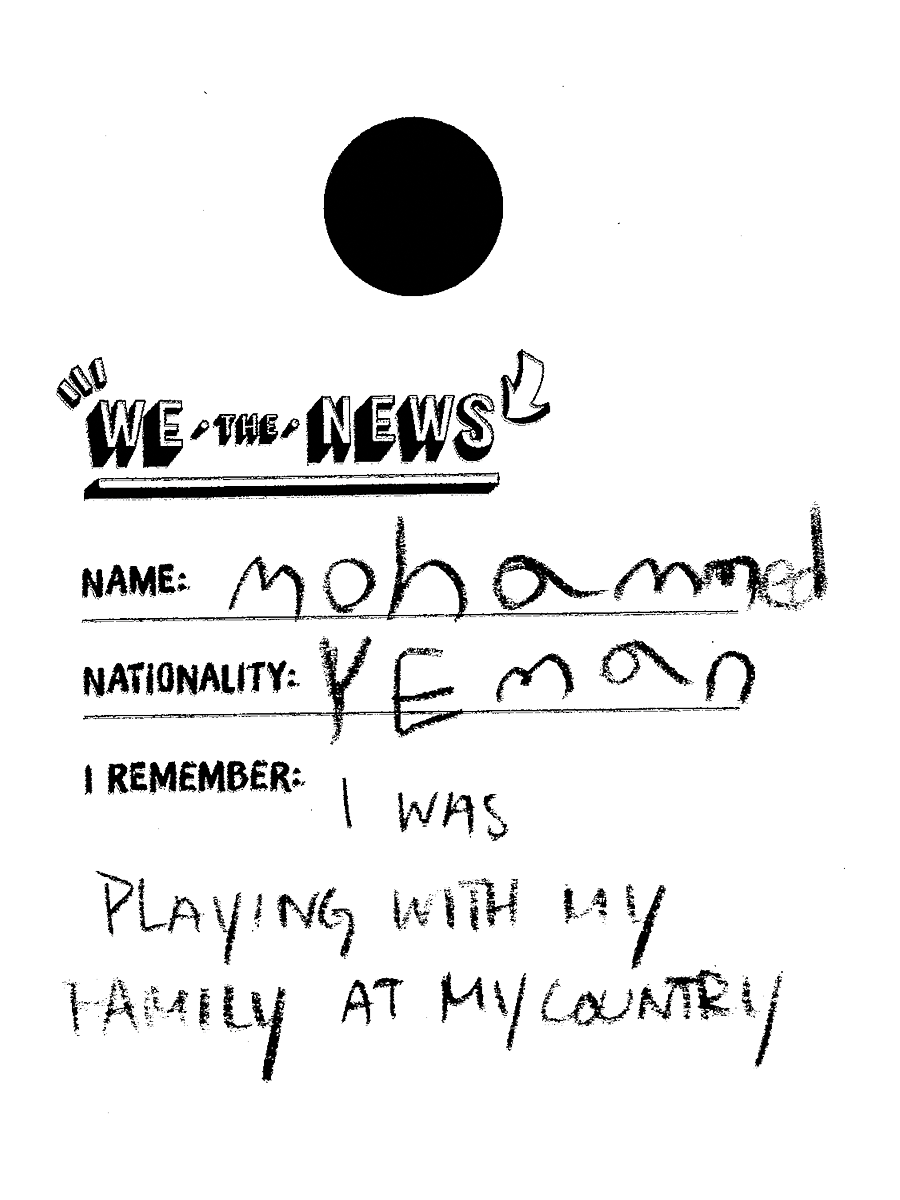 WE THE NEWS
NAME: Mohammed
NATIONALITY: YEman
I REMEMBER: I WAS
PLAYING WITH MY
FAMILY AT MY COUNTRY